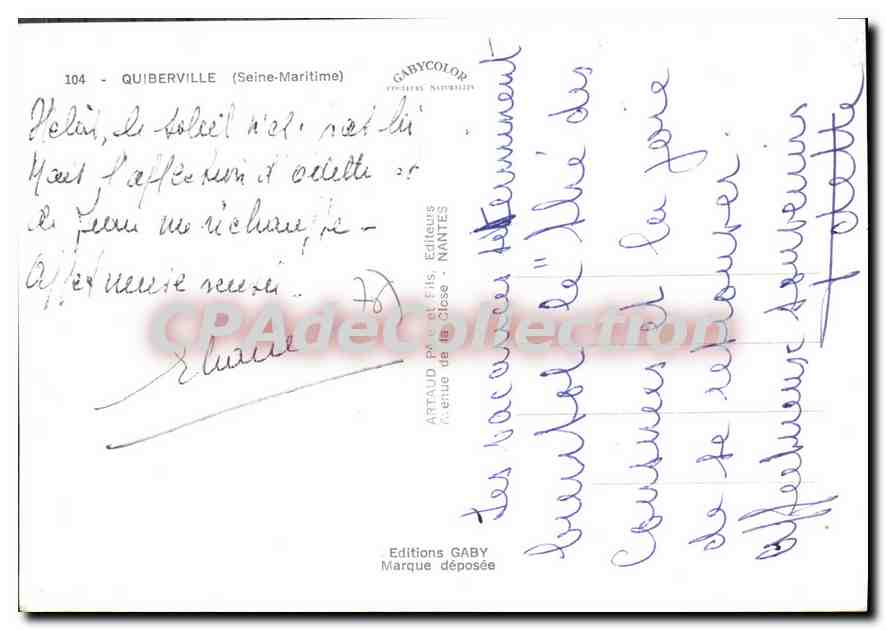 104 - QUIBERVILLE (Seine-Maritime)
GABYCOLOR
COULEURS NATURELLES
Hélas, le soleil n'est pas là
Mais l'affection d'Odette et
de Jean me réchauffe -
Affectueuse
Eliane
ARTAUD Père et Fils, Editeurs
Avenue de la Close - NANTES
Editions GABY
Marque déposée
Les vacances se terminent
bientôt le "thé des
Cousines et la joie
de te retrouver.
affectueux souvenirs
Odette
CPAdeCollection